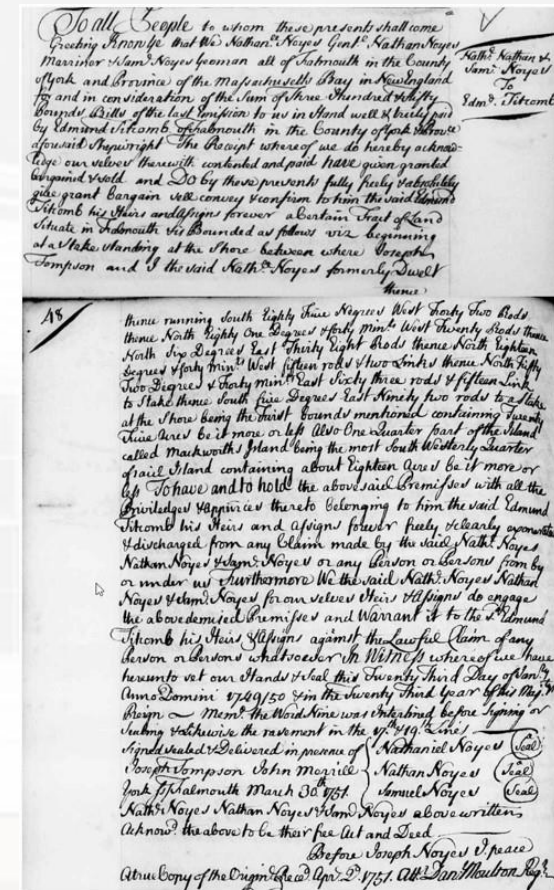 To all People to whom these presents shall come
Greeting Know Ye that We Nathan.el Noyes Gent.n Nathan Noyes
Marriner & Sam.l Noyes Yeoman all of Falmouth in the County
of York and Province of the Massachusetts Bay in New England
for and in consideration of the Sum of Three Hundred & fifty
Pounds Bills of the last Emission to us in Hand well & truly paid
by Edmund Titcomb of Falmouth in the County of York & Provce
aforesaid Shipwright The Receipt whereof we do hereby acknow-
ledge our selves therewith contented and paid have given granted
bargained & sold and Do by these presents fully freely & absolutely
give grant bargain sell convey & confirm to him the said Edmund
Titcomb his Heirs and Assigns forever a Certain Tract of Land
Situate in Falmouth & is Bounded as follows viz beginning
at a Stake standing at the Shore between where Joseph
Tompson and I the said Nath.l Noyes formerly Dwelt
thence
Nath.l Nathan &
Sam.l Noyes
To
Edm.d Titcomb
48
thence running South Eighty Five Degrees West Forty Two Rods
thence North Eighty One Degrees & forty Min.s West Twenty Rods thence
North Six Degrees East Thirty Eight Rods thence North Eighteen
Degrees & forty Min.s West fifteen rods & two Links thence North Fifty
Two Degrees & Forty Min.s East Sixty three rods & fifteen Link
to Stake thence South five Degrees East Ninety two rods to a Stake
at the Shore being the First bounds mentioned containing Twenty
Five Acres be it more or less Also One Quarter part of the Island
called Mackworths Island being the most South Westerly Quarter
of said Island containing about Eighteen Acres be it more or
less To have and to hold the abovesaid Premisses with all the
Priviledges & appurces thereto belonging to him the said Edmund
Titcomb his Heirs and Assigns forever freely & clearly exonerated
& discharged from any Claim made by the said Nath.l Noyes
Nathan Noyes & Sam.l Noyes or any Person or Persons from by
or under us Furthermore We the said Nath.l Noyes Nathan
Noyes & Sam.l Noyes for our selves Heirs & Assigns do engage
the abovedemised Premisses and Warrant it to the s.d Edmund
Titcomb his Heirs & Assigns against the Lawful Claim of any
Person or Persons whatsoever In Witness whereof we have
hereunto set our Hands & Seal this Twenty Third Day of Jan.ry
Anno Domini 1749/50 & in the Twenty Third Year of his Maj.ys
Reign Mem.o the Word Nine was Interlined before Signing or
Sealing & Likewise the rasement in the 17.th & 19.th Lines
Signed sealed & Delivered in presence of Nathaniel Noyes (Seal)
Joseph Tompson John Merrill Nathan Noyes (Seal)
York ss Falmouth March 30.th 1751. Samuel Noyes (Seal)
Nath.l Noyes Nathan Noyes & Sam.l Noyes above written
Acknow.d the above to be their free Act and Deed
Before Joseph Noyes J. peace
A true Copy of the Origin.l Rece.d Apr.l 2.d 1751. Att.r Dan.l Moulton Reg.r